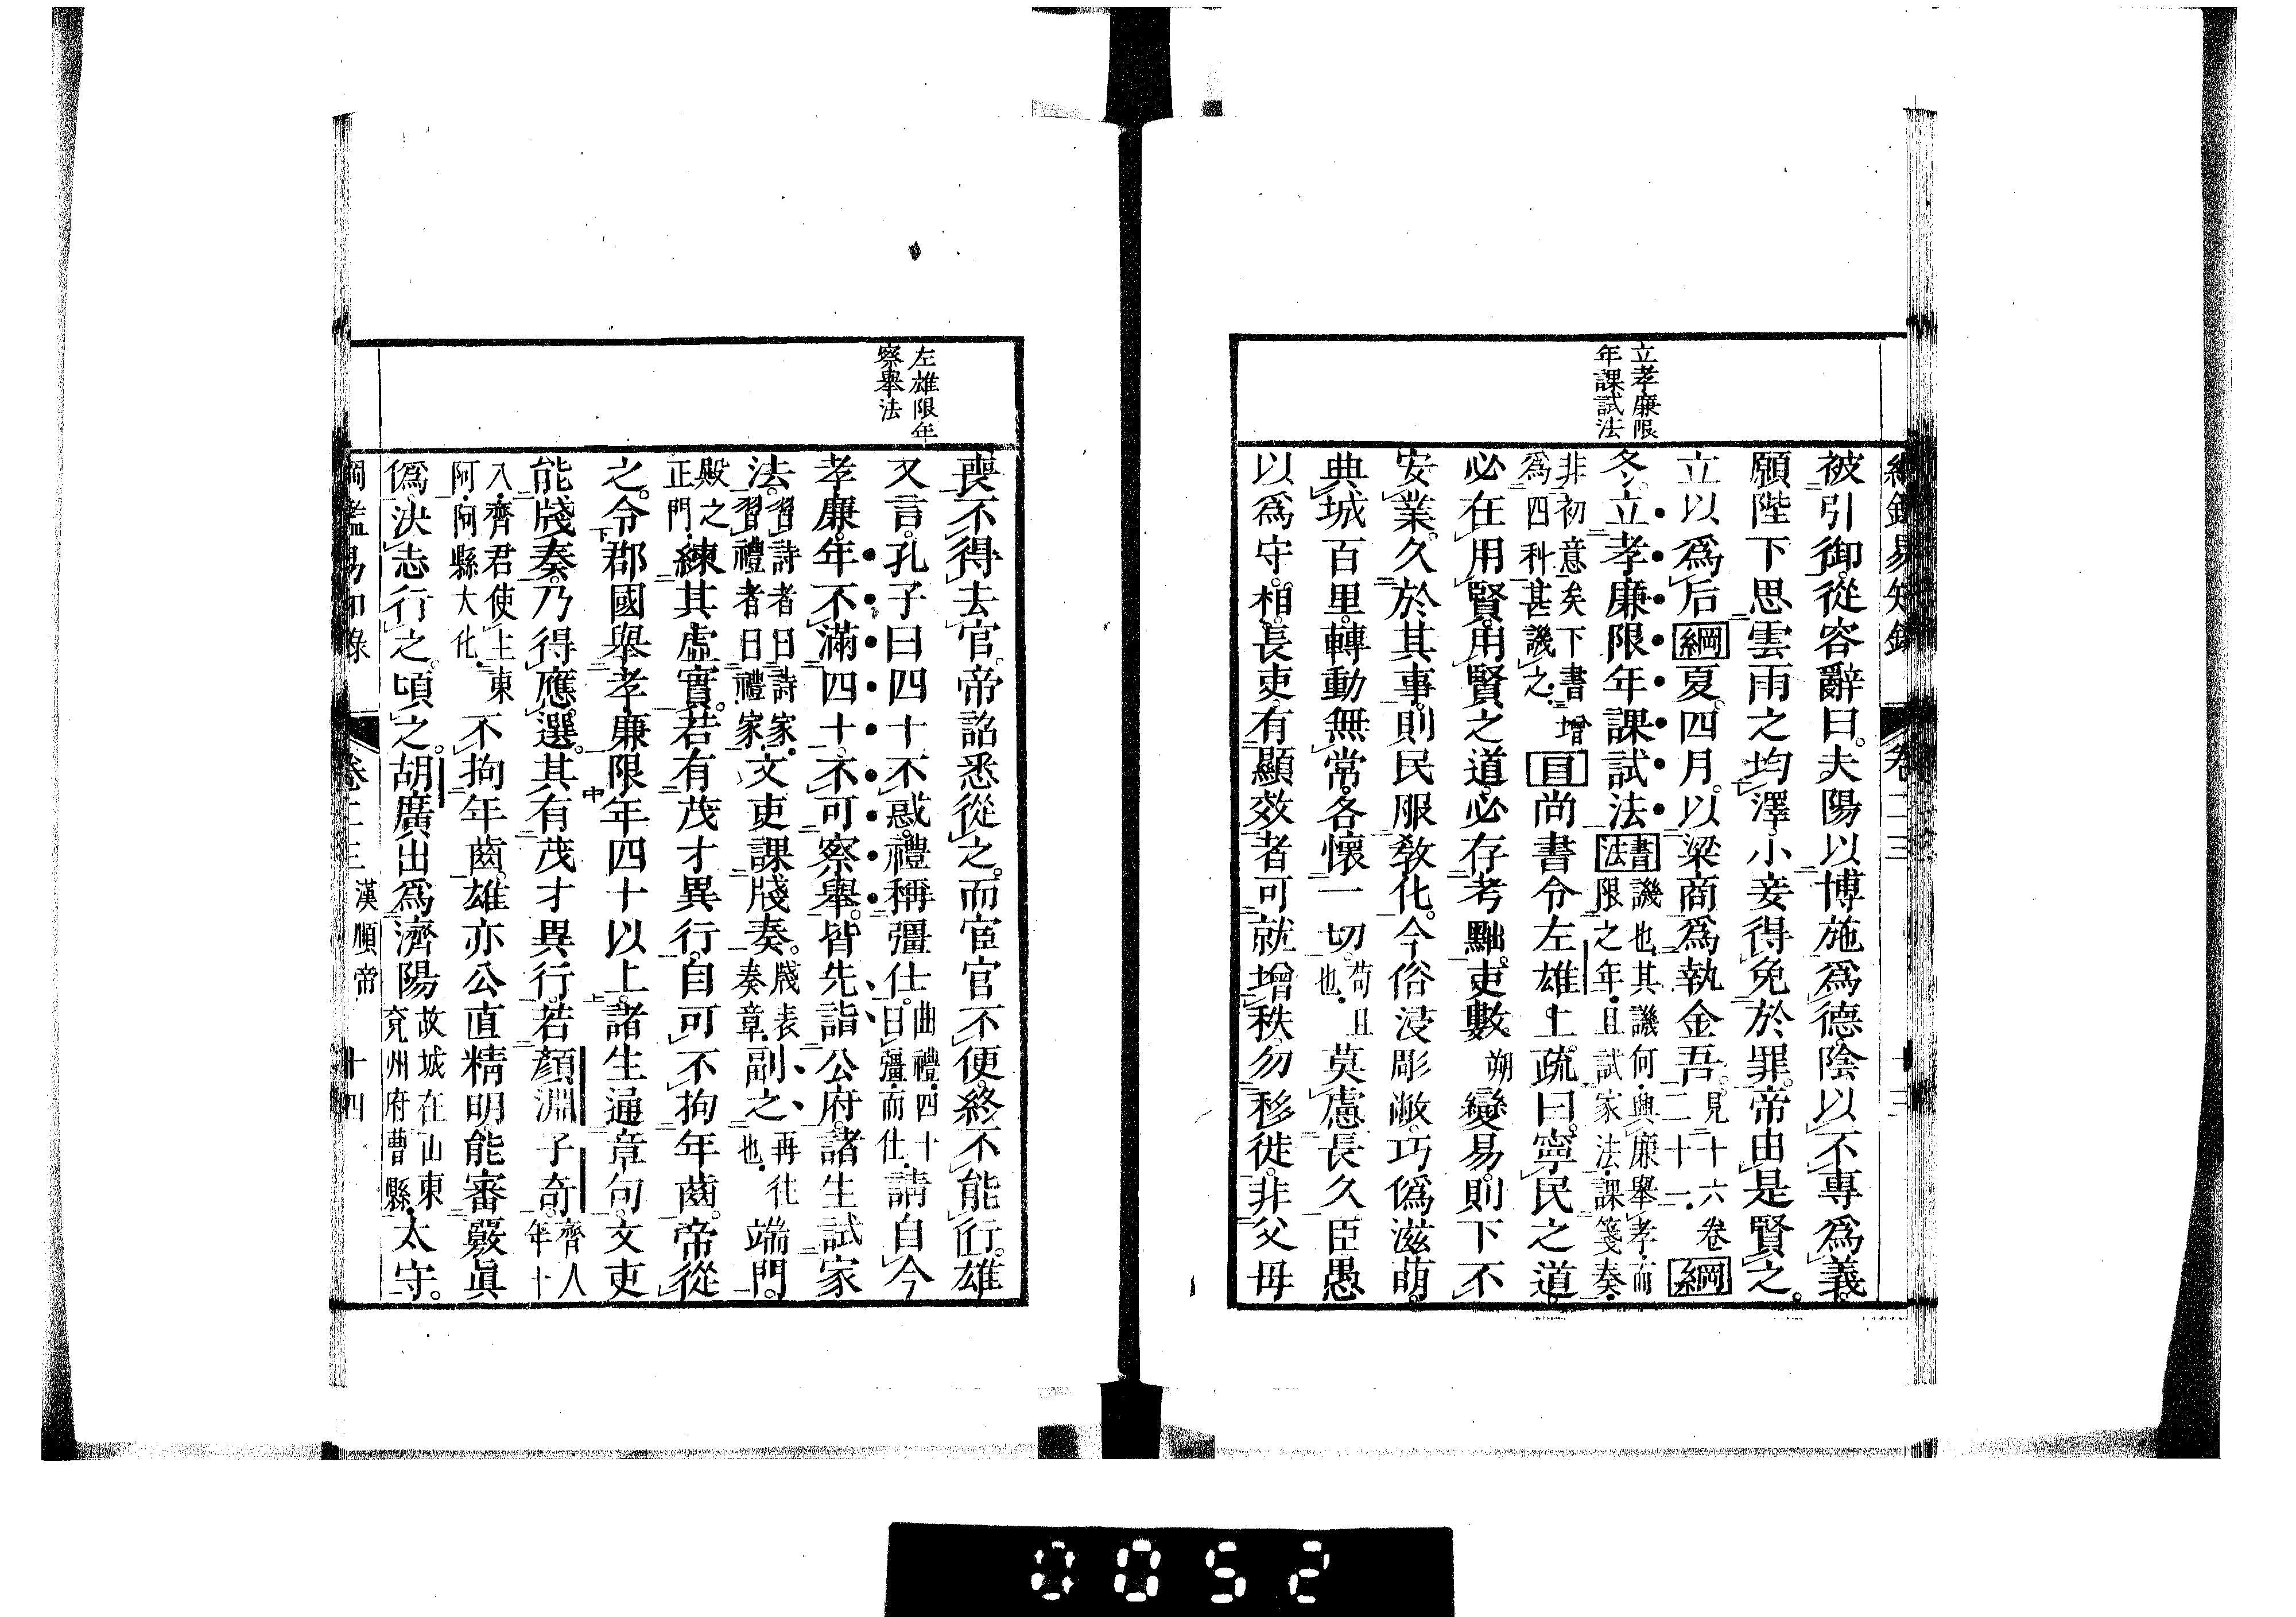 綱鑑易知錄 卷二三 十三
立孝廉限
年課試法
被引御。從容辭曰。夫陽以博施爲德。陰以不專爲義。
願陛下思雲雨之均澤。小妾得免於罪。帝由是賢之。
立以爲后綱夏。四月。以梁商爲執金吾。見十六卷二十一．綱
冬。立孝廉限年課試法書法譏也。其譏何．興廉舉孝．而限之年．且試家法．課箋奏．
非初意矣下書增爲四科甚譏之．目尚書令左雄上疏曰。寧民之道。
必在用賢。用賢之道。必存考黜。吏數朔變易。則下不
安業。久於其事。則民服教化。今俗浸彫敝。巧僞滋萌。
典城百里。轉動無常。各懷一切。苟且也．莫慮長久。臣愚
以爲守。相。長吏。有顯效者。可就增秩。勿移徙。非父母
左雄限年
察舉法
喪。不得去官。帝詔悉從之。而宦官不便。終不能行。雄
又言。孔子曰四十不惑。禮稱彊仕。曲禮．四十曰彊．而仕．請自今
孝廉。年不滿四十。不可察舉。皆先詣公府。諸生試家
法。習詩者曰詩家．習禮者曰禮家．文吏課牋奏。牋表奏章．副之再往也．端門。
殿之正門．練其虛實。若有茂才異行。自可不拘年齒。帝從
之。令郡國舉孝廉限年四十以上。諸生通章句。文吏
能牋奏。乃得應選。其有茂才異行。若顏淵子奇。齊人年十
八．齊君使主東阿．阿縣大化．不拘年齒。雄亦公直精明能審覈眞
僞。決志行之。頃之。胡廣出爲濟陽故城在山東兗州府曹縣．太守。
綱鑑易知錄 卷二三 漢順帝 十四
0052